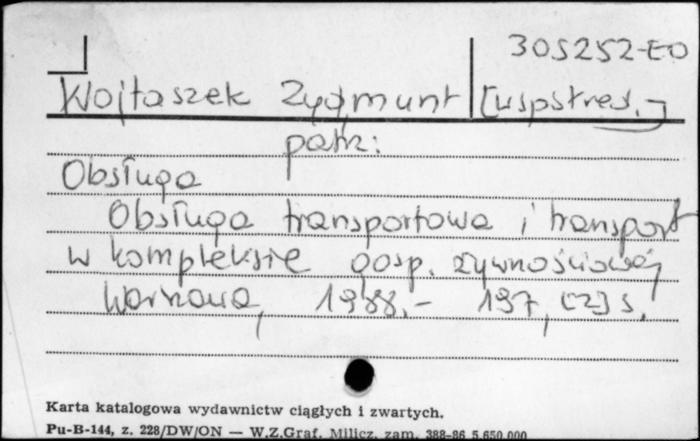 305252-EO
Wojtaszek Zygmunt [wspstred.]
patrz:
Obsługa
Obsługa transportowa i transport
w kompleksie gosp. żywnościowej
Warszawa, 1988.- 197, [2] s.
Karta katalogowa wydawnictw ciągłych i zwartych.
Pu-B-144, z. 228/DW/ON — W.Z.Graf. Milicz, zam. 388-86 5.650.000